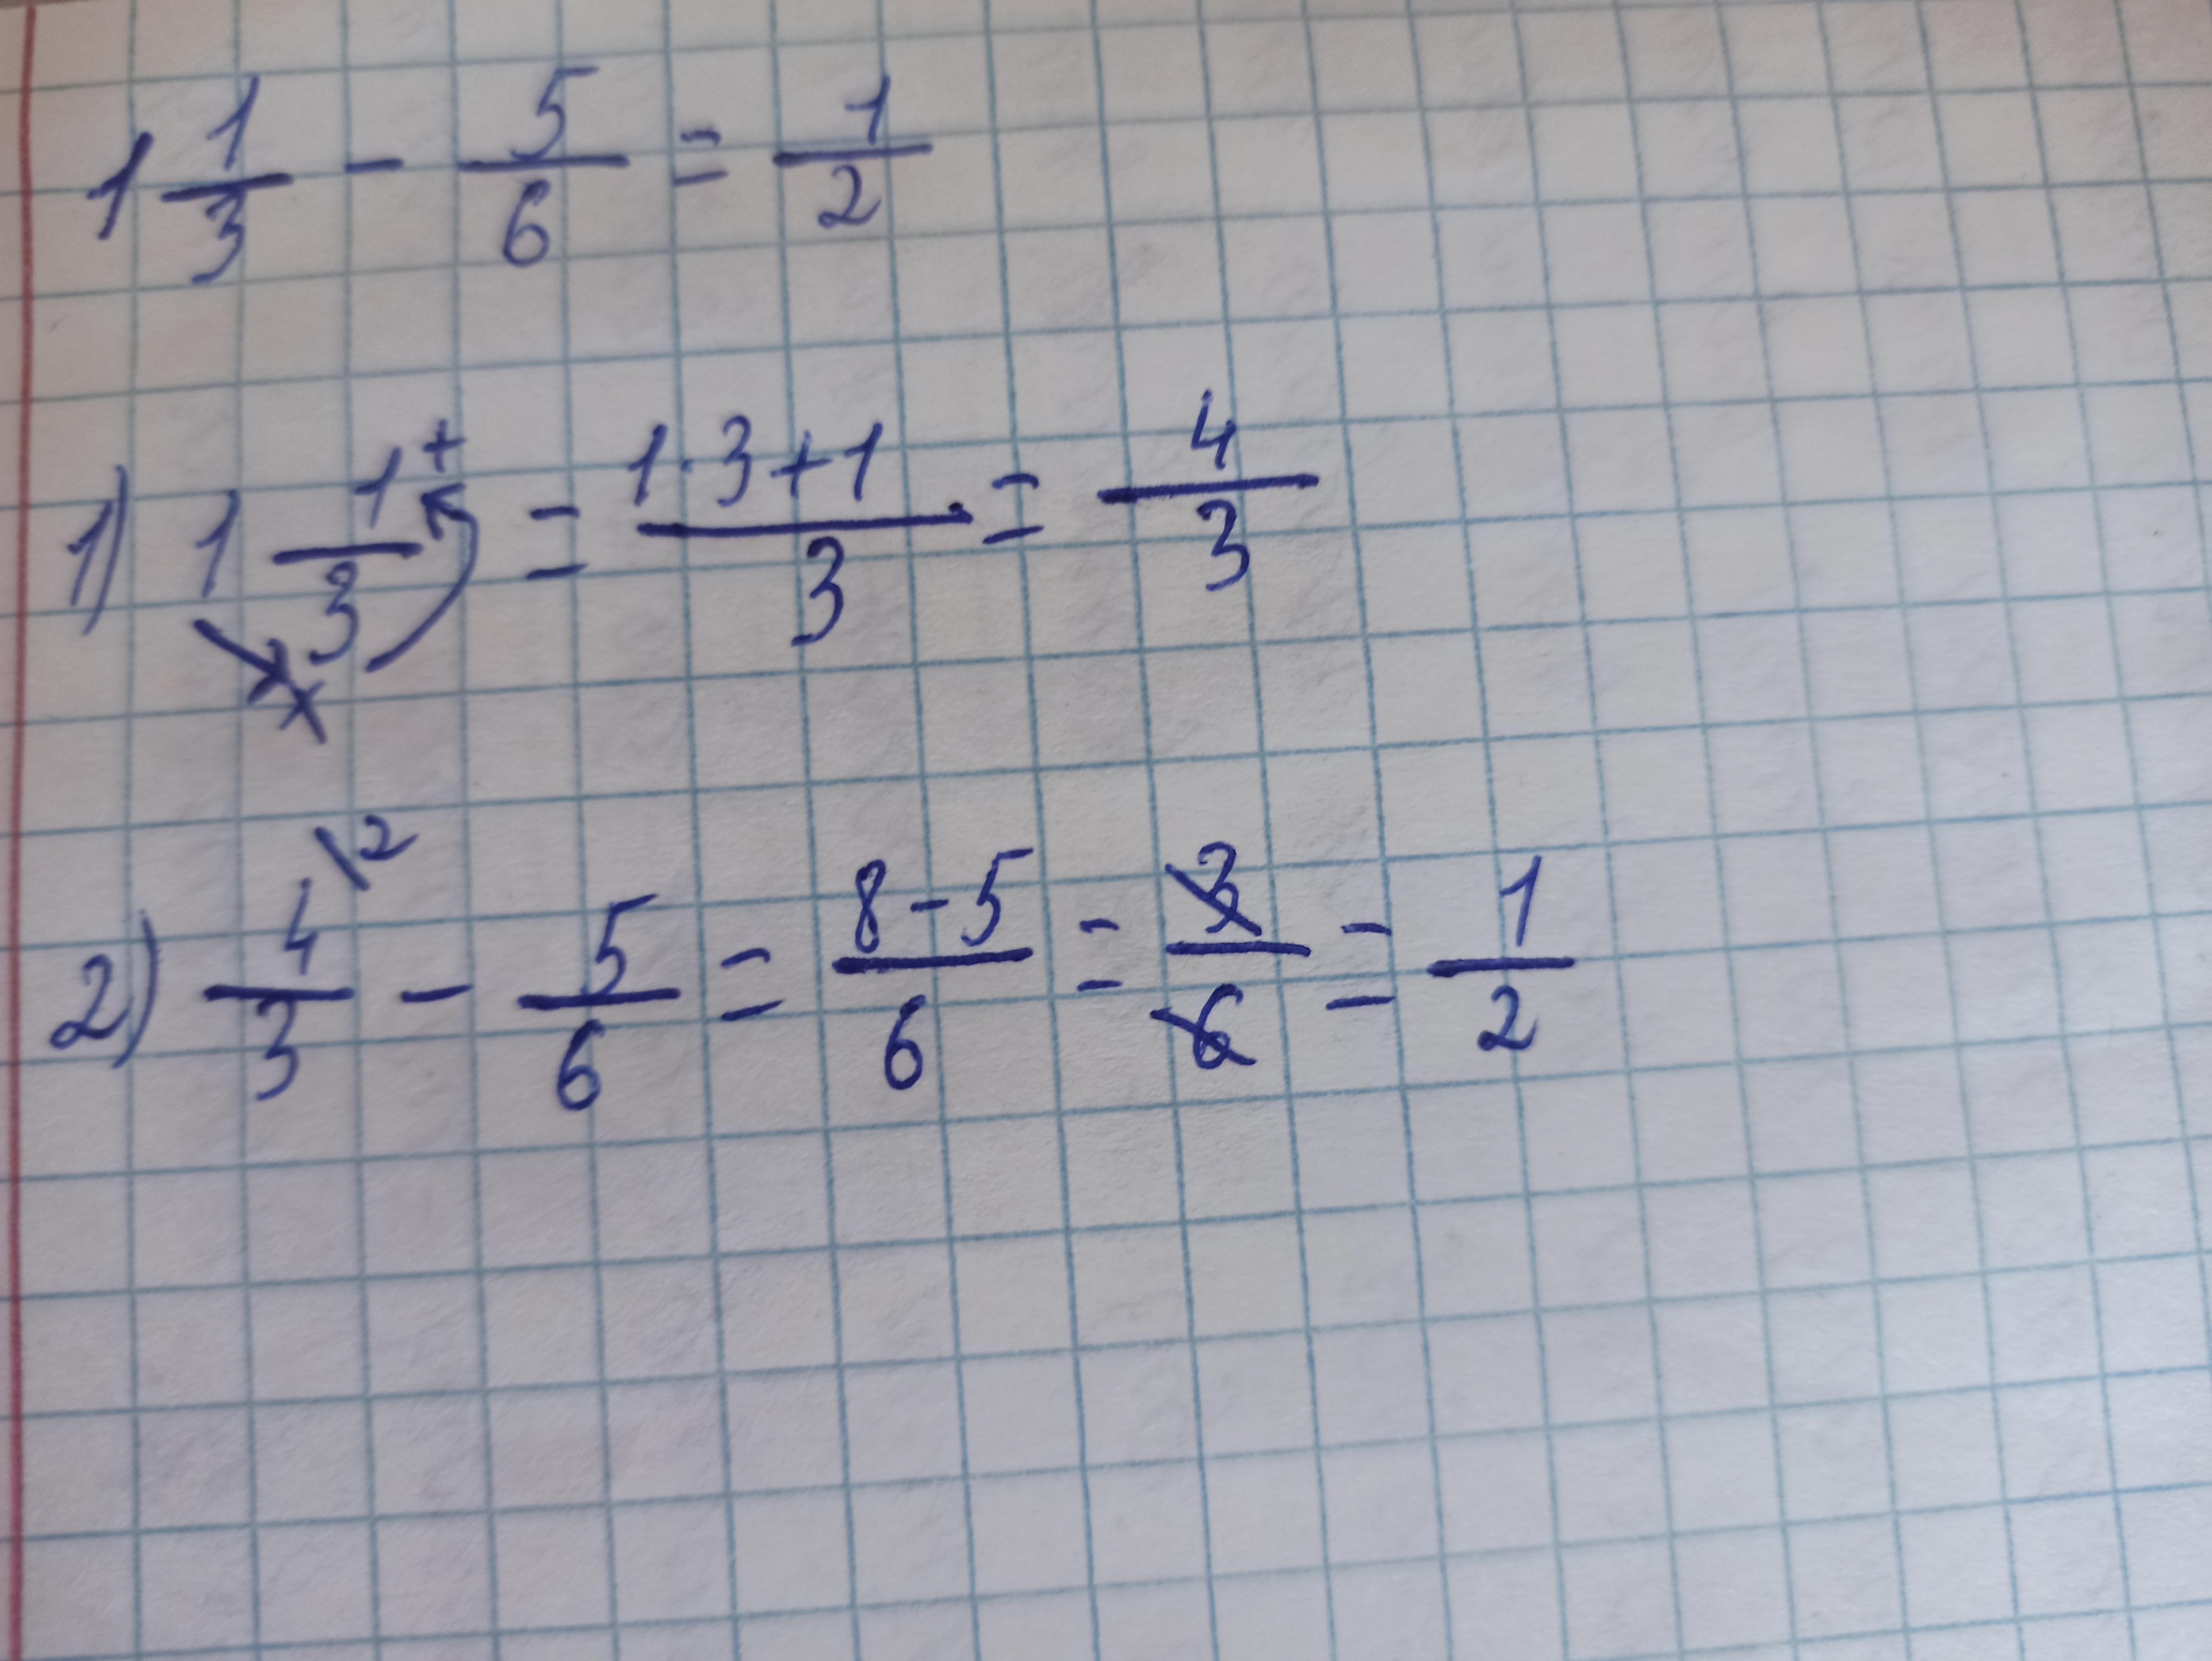 1 1/3 - 5/6 = 1/2
1) 1 1/3 + x = (1·3+1)/3 = 4/3
2) 4/3 \2 - 5/6 = (8-5)/6 = 3/6 = 1/2